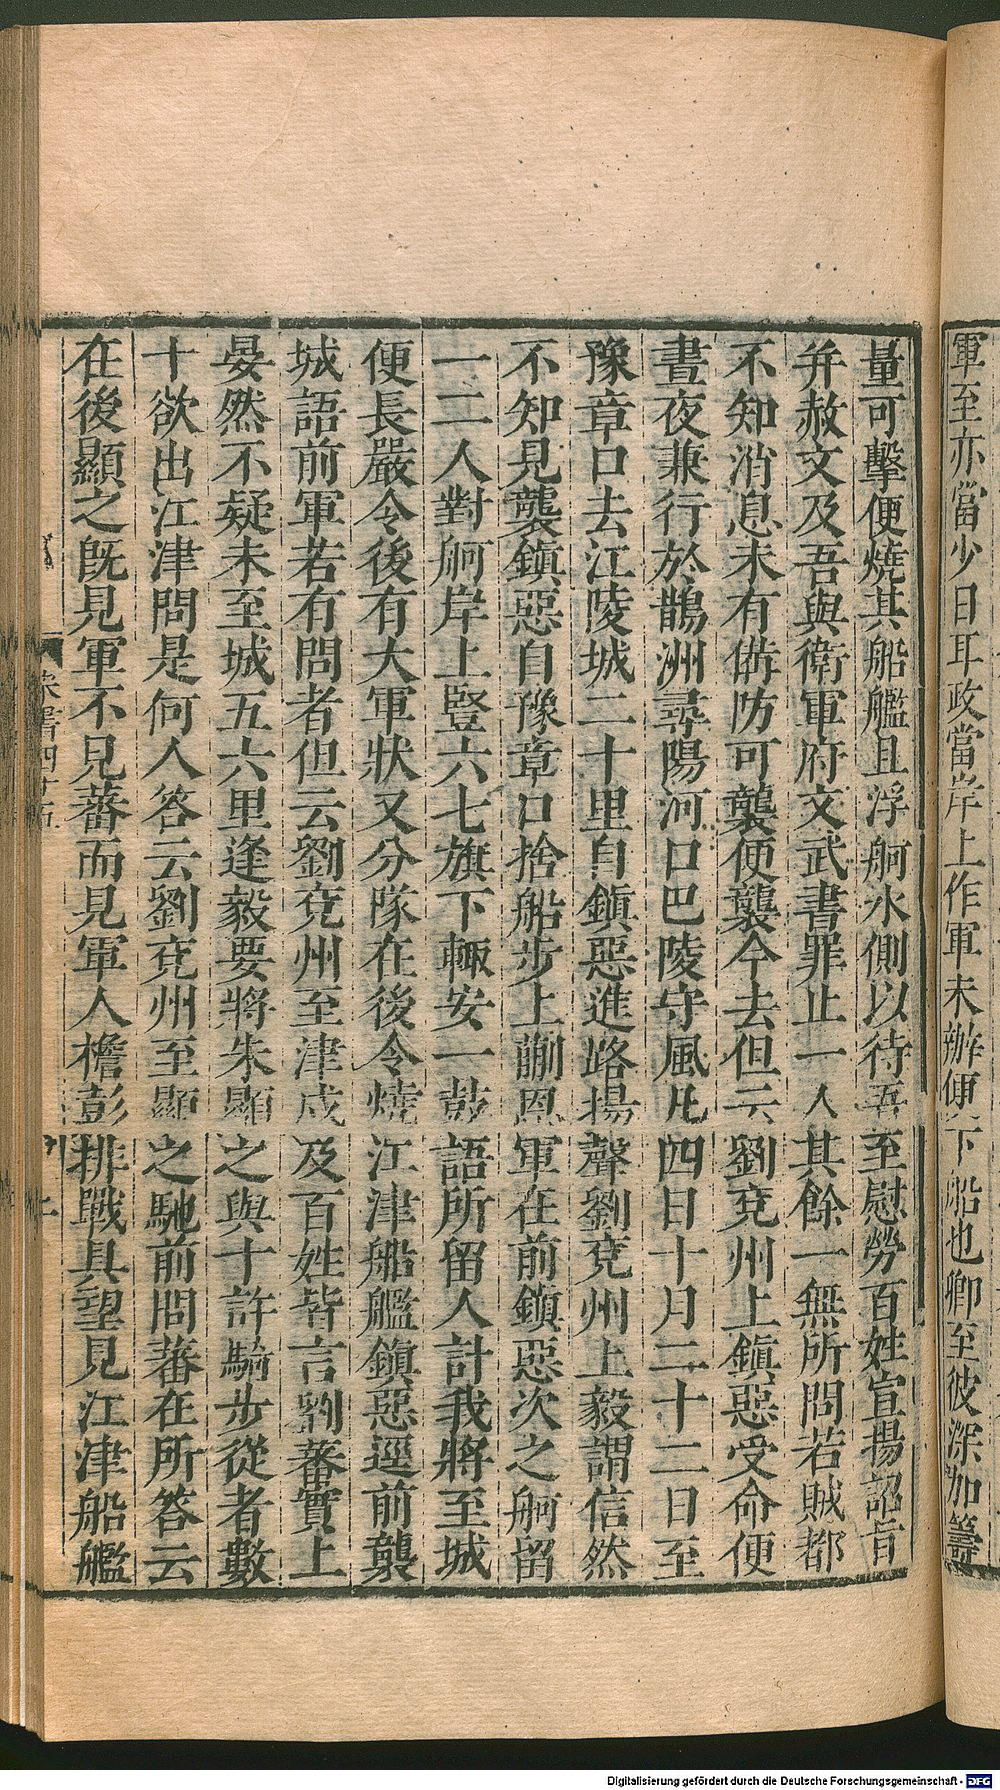 軍至亦當少日耳政當岸上作軍未辦便下船也卿至彼深加籌
量可擊便燒其船艦且浮舸水側以待吾至慰勞百姓宣揚詔旨
并赦文及吾與衛軍府文武書罪止一人其餘一無所問若賊都
不知消息未有備防可襲便襲今去但云劉兗州上鎮惡受命便
晝夜兼行於鵲洲尋陽河口巴陵守風凡四日十月二十二日至
豫章口去江陵城二十里自鎮惡進路揚聲劉兗州上毅謂信然
不知見襲鎮惡自豫章口捨船步上蒯恩軍在前鎮惡次之舸留
一二人對舸岸上豎六七旗下輙安一鼓語所留人計我將至城
便長嚴令後有大軍狀又分隊在後令燒江津船艦鎮惡逕前襲
城語前軍若有問者但云劉兗州至津戍及百姓皆言劉蕃實上
晏然不疑未至城五六里逢毅要將朱顯之與十許騎步從者數
十欲出江津問是何人答云劉兗州至顯之馳前問蕃在所答云
在後顯之旣見軍不見蕃而見軍人檐彭排戰具望見江津船艦
宋書四十五
列
Digitalisierung gefördert durch die Deutsche Forschungsgemeinschaft - DFG